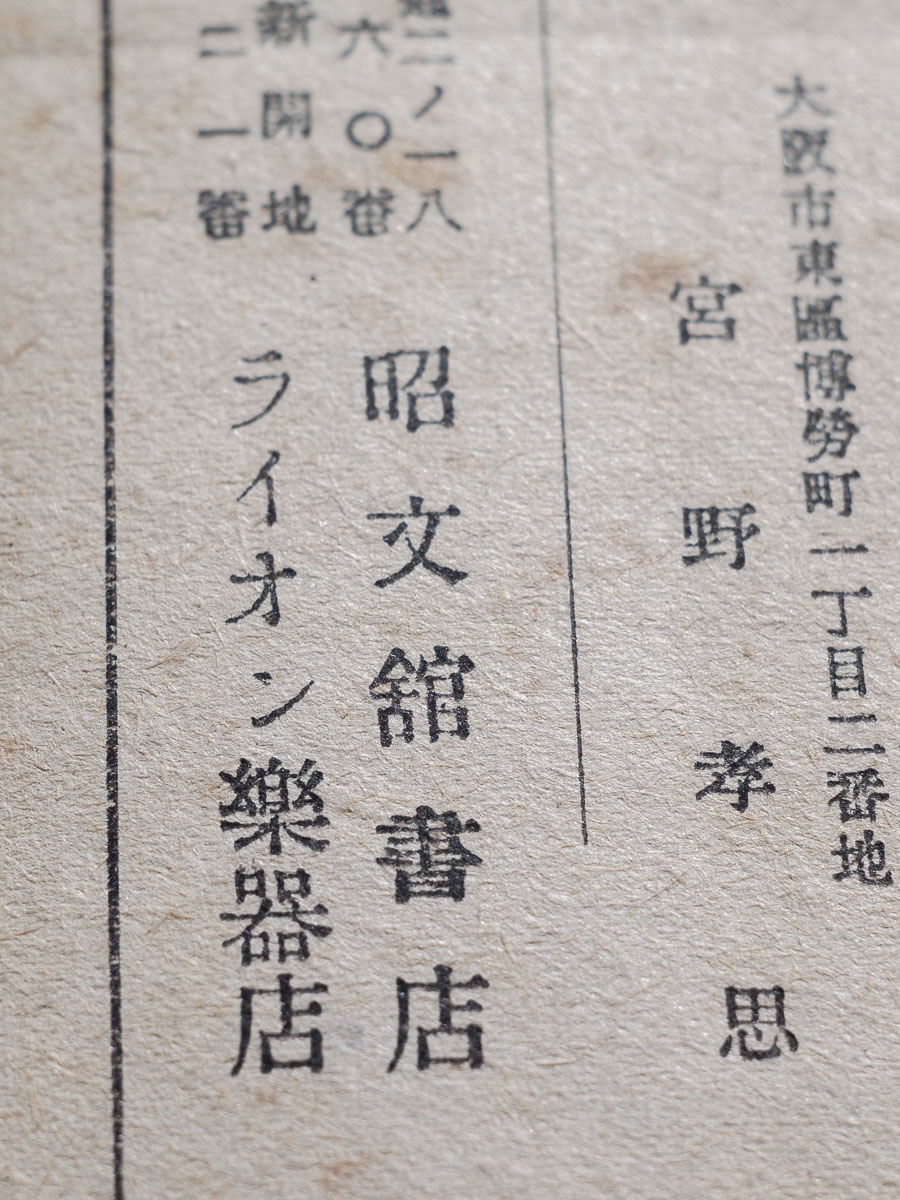 大阪市東區博勞町一丁目二番地
宮野孝思
二ノ一八
六〇番
昭文舘書店
新開地
二一番
ライオン樂器店